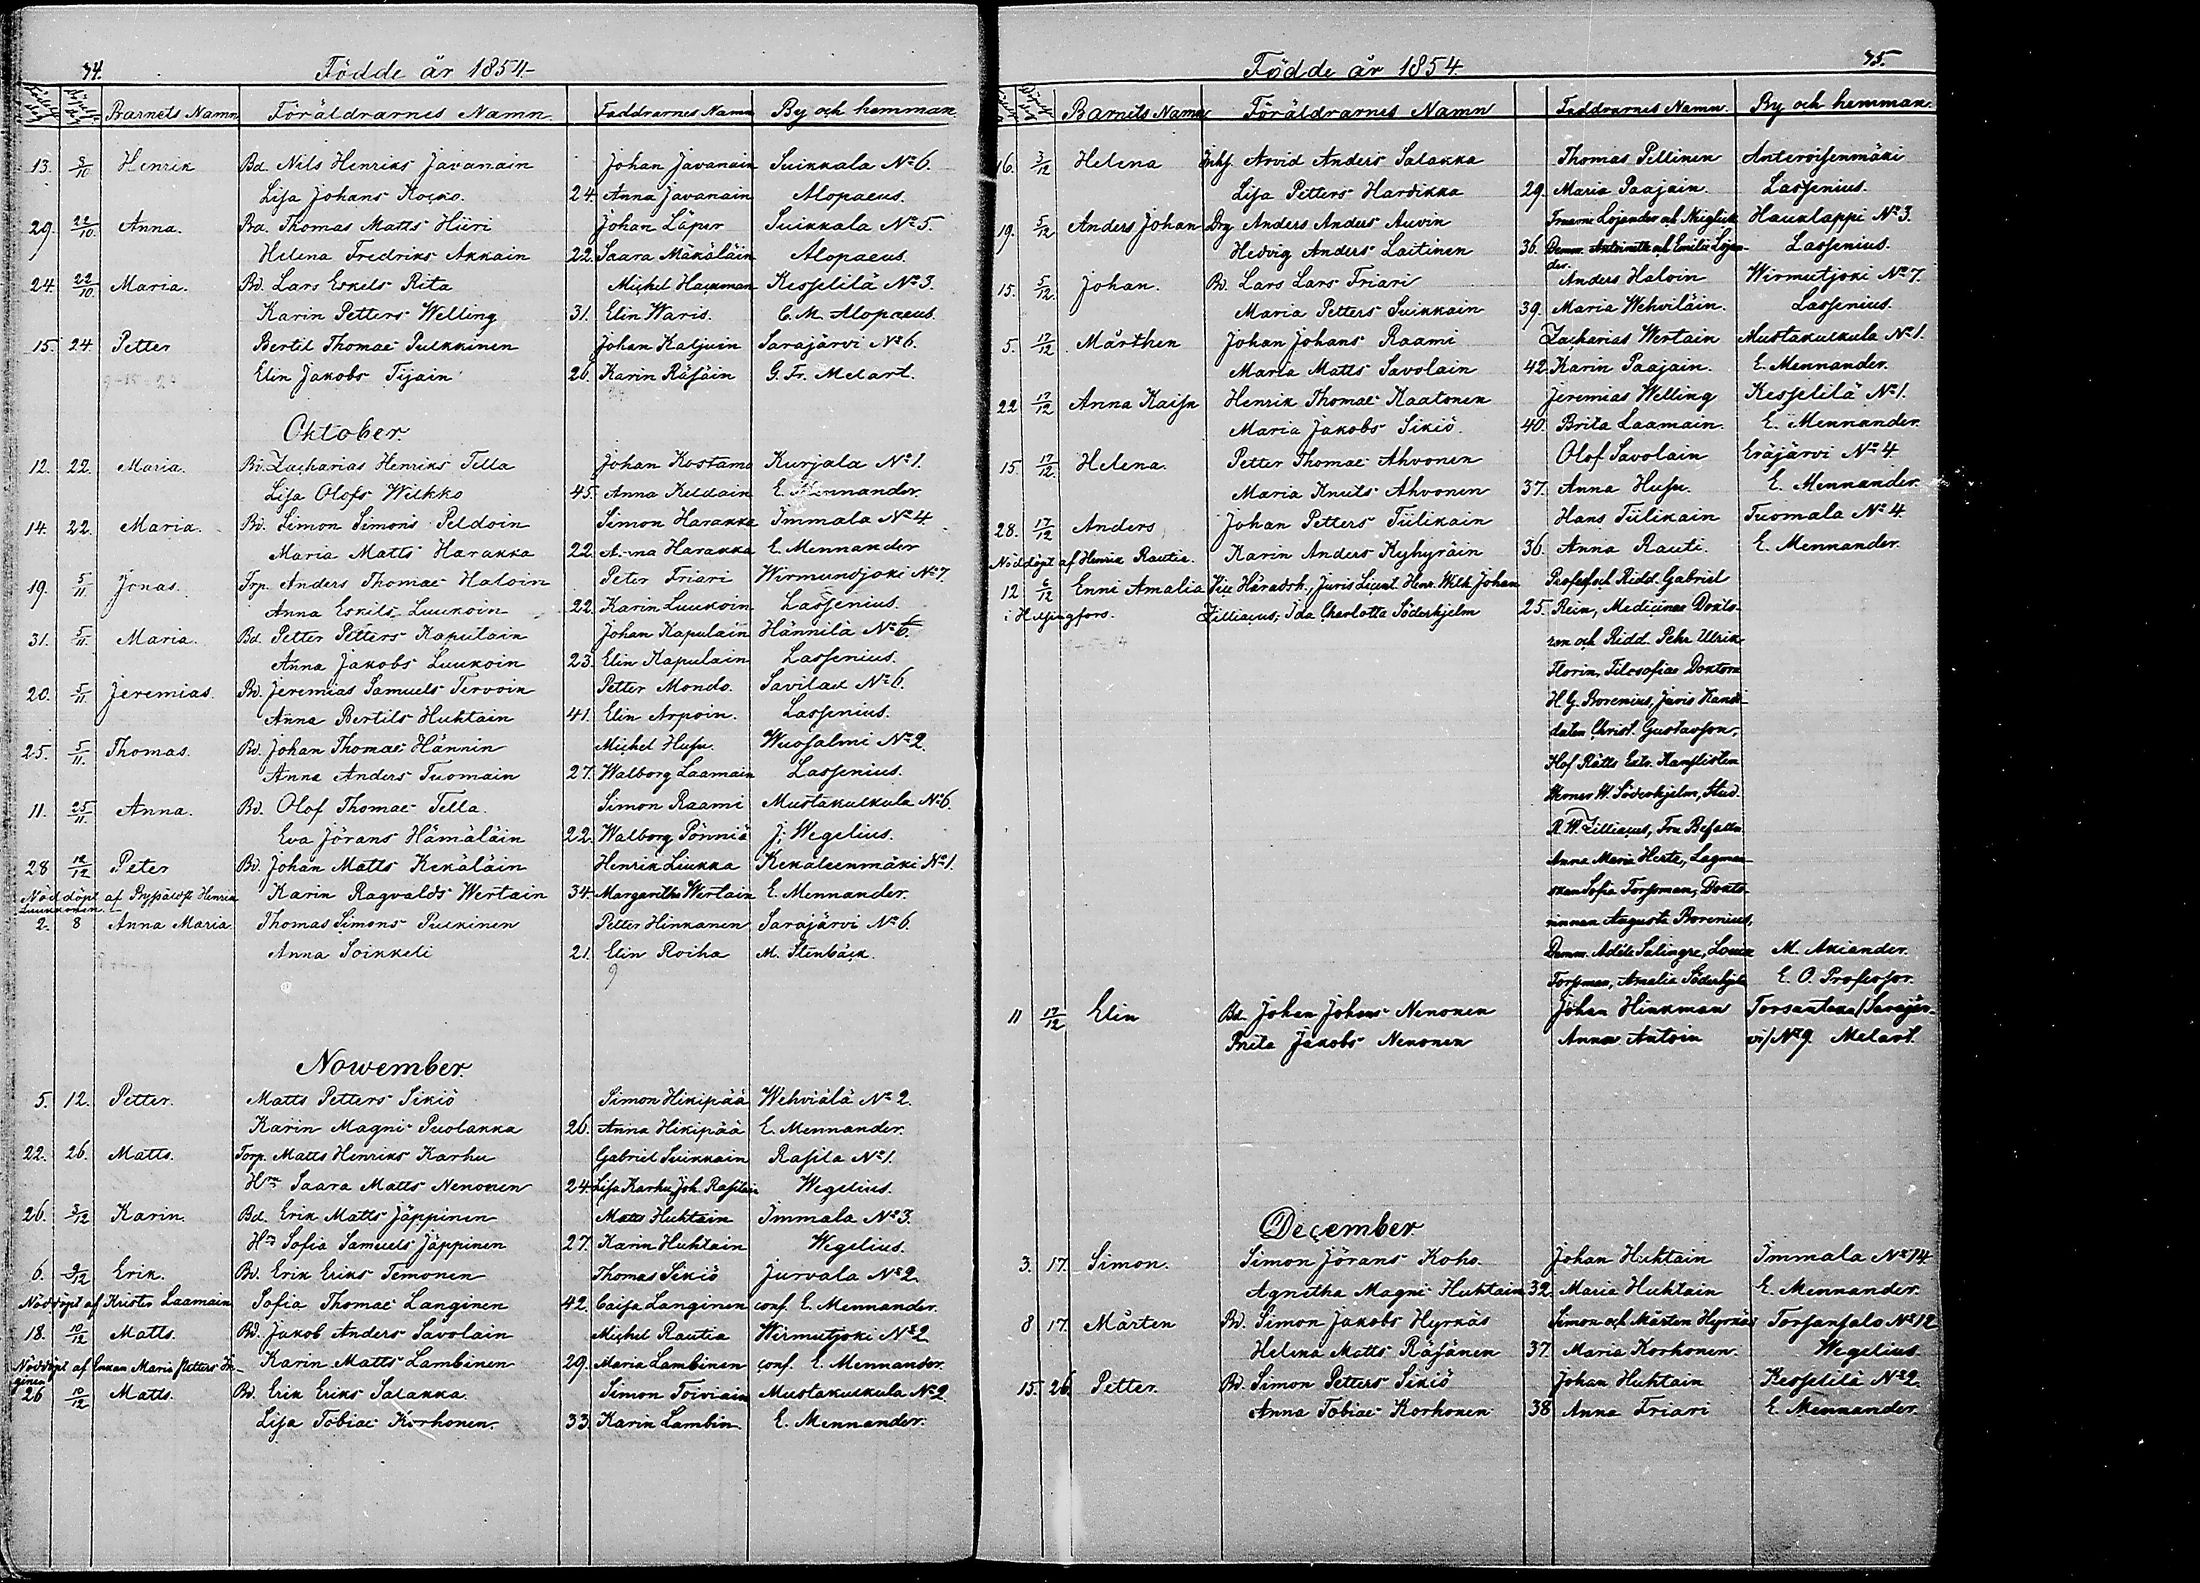 74.
Födde år 1854
Barnets Namn Föräldrarnes Namn Faddrarnes Namn By och hemman
13. 8/10 Henrik Bd. Nils Henriks Javanain Johan Javanain Suikkala No 6.
Lisa Johans 24. Anna Javanain Alopaeus.
29. 22/10. Anna. Bd. Thomas Matts Hiiri Johan Läper Suikkala No 5.
Helena Fredriks Akkain 22. Saara Mäkäläin Alopaeus.
24. 22/10. Maria. Bd. Lars Eskels Rita Michel Hackman Kesselilä No 3.
Karin Petters Welling 31. Elin Waris. C. M. Alopaeus.
15. 24. Petter Bertil Thomae Pulkkinen Johan Katjuin Sarajärvi No 6.
Elin Jakobs Tijain 26. Karin Räsäin G. Fr. Melart.
Oktober.
12. 22. Maria. Bd. Zacharias Henriks Tella Johan Kostama Kurjala No 1.
Lisa Olofs Wilkko 45. Anna Keldain E. Mennander.
14. 22. Maria. Bd. Simon Simons Peldoin Simon Harakka Immala No 4
Maria Matts Harakka 22. Anna Harakka E. Mennander
19. 5/11 Jonas. Trp. Anders Thomae Haloin Peter Friari Wirmundjoki No 7.
Anna Eskils Luukoin 22. Karin Luukoin Lassenius.
31. 5/11. Maria. Bd. Petter Petters Kapulain Johan Kapulain Hännilä No 6.
Anna Jakobs Luukoin 23. Elin Kapulain Lassenius.
20. 5/11. Jeremias. Bd. Jeremias Samuels Tervoin Petter Mondo. Savilax No 6.
Anna Bertils Huhtain 41. Elin Arpoin. Lassenius.
25. 5/11. Thomas. Bd. Johan Thomae Hännin Michel Husu. Wuosalmi No 2.
Anna Anders Tuomain 27. Walborg Laamain Lassenius.
11. 25/11. Anna. Bd. Olof Thomae Tella. Simon Raami Mustakulkula No 6.
Eva Jörans Hämäläin 22. Walborg Pönniä J. Wegelius.
28 12/12 Peter Bd. Johan Matts Kekäläin Henrik Liukka Kekäleenmäki No 1.
Nöddöpt af Henrik Karin Ragvalds Wertain 34. Margaritha Wertain E. Mennander.
Luukkonen.
2. 8 Anna Maria Thomas Simons Pulkinen Petter Hinkanen Sarajärvi No 6.
Anna Soinkeli 21. Elin Roiha M. Stenbäck.
Nowember.
5. 12. Petter. Matts Petters Sikiö Simon Hikipää Wehviälä No 2.
Karin Magni Puolakka 26. Anna Hikipää E. Mennander.
22. 26. Matts. Torp. Matts Henriks Karhu Gabriel Suikkain Rasila No 1.
Hru Saara Matts Nenonen 24. Lisa Karhu, Joh. Rasilain Wegelius.
26. 3/12 Karin. Bd. Erik Matts Jäppinen Matts Huhtain Immala No 3.
Hru Sofia Samuels Jäppinen 27. Karin Huhtain Wegelius.
6. 9/12 Erik. Bd. Erik Eriks Temonen Thomas Sikiö Jurvala No 2.
Nöddöpt af Krister Laamain Sofia Thomae Langinen 42. Caisa Langinen conf. E. Mennander.
18. 10/12 Matts. Bd. Jakob Anders Savolain Michel Rautia Wirmutjoki No 2
Nöddöpt af Enkan Maria Petters Karin Matts Lambinen 29. Maria Lambinen conf. E. Mennander.
26 10/12 Matts. Bd. Erik Eriks Salakka. Simon Toiviain Mustakulkula No 2.
Lisa Tobiae Korhonen. 33. Karin Lambin E. Mennander.
75.
Födde år 1854.
Barnets Namn Föräldrarnes Namn Faddrarnes Namn. By och hemman.
16. 3/12 Helena Inhs. Arvid Anders Salakka Thomas Pellinen Anteroisenmäki
Lisa Petters Hardikka 29. Maria Paajain. Lassenius.
19. 5/12 Anders Johan Drg Anders Anders Auvin Fruarne Lojander och Hauklappi No 3.
Hedvig Anders Laitinen 36. Demm. och Emilie Lojan- Lassenius.
der.
15. 5/12. Johan. Bd. Lars Lars Friari Anders Haloin Wirmutjoki No 7.
Maria Petters Suikkain 39. Maria Wehviläin. Lassenius.
5. 17/12 Mårthen Johan Johans Raami Zacharias Wertain Mustakulkula No 1.
Maria Matts Savolain 42. Karin Paajain. E. Mennander.
22 17/12 Anna Kaisa Henrik Thomae Kaatonen Jeremias Welling Kesselilä No 1.
Maria Jakobs Sikiö. 40. Brita Laamain. E. Mennander.
15 17/12. Helena. Petter Thomae Ahvonen Olof Savolain Eräjärvi No 4
Maria Knuts Ahvonen 37. Anna Husu. E. Mennander.
28. 17/12 Anders Johan Petters Tiilikain Hans Tiilikain Tuomala No 4.
Nöddöpt af Henrik Rautia. Karin Anders Kyhyräin 36. Anna Rauti. E. Mennander.
12 6/12 Enni Amalia Vice Häradsh., Juris Licent. Henr. Wilh. Johan Profess. och Ridd. Gabriel
i Helsingfors. Zilliacus, Ida Charlotta Söderhjelm 25. Rein, Medicinae Dokto-
ren och Ridd. Pehr Ulrik
Florin, Filosofiae Doktorn
H. G. Borenius, Juris Kandi-
daten Christ. Gustavson,
Hof Rätts Extr. Kanslisten
Werner W. Söderhjelm, Stud.
R. W. Zilliacus, Fru Befalln.
Anna Maria Hertz, Lagman-
skan Sofia Forssman, Dokto-
rinnan Augusta Borenius,
Demm. Adéle Salingre, Lovisa M. Akiander.
Forsman, Amalia Söderhjelm E. O. Professor.
11 17/12 Elin Bd. Johan Johans Nenonen Johan Hinkman Torsantaka/Sarajär-
Brita Jakobs Nenonen Anna Autoin vi/No 9. Melart.
December.
3. 17. Simon. Simon Jörans Koho. Johan Huhtain Immala No 14
Agnetha Magni Huhtain 32. Maria Huhtain E. Mennander.
8 17. Mårten Bd. Simon Jakobs Hyrkäs Simon och Mårten Hyrkäs Torsansalo No 12
Helena Matts Räsänen 37. Maria Korhonen. Wegelius.
15. 26. Petter. Bd. Simon Petters Sikiö Johan Huhtain Kesselilä No 2.
Anna Tobiae Korhonen 38 Anna Friari E. Mennander.